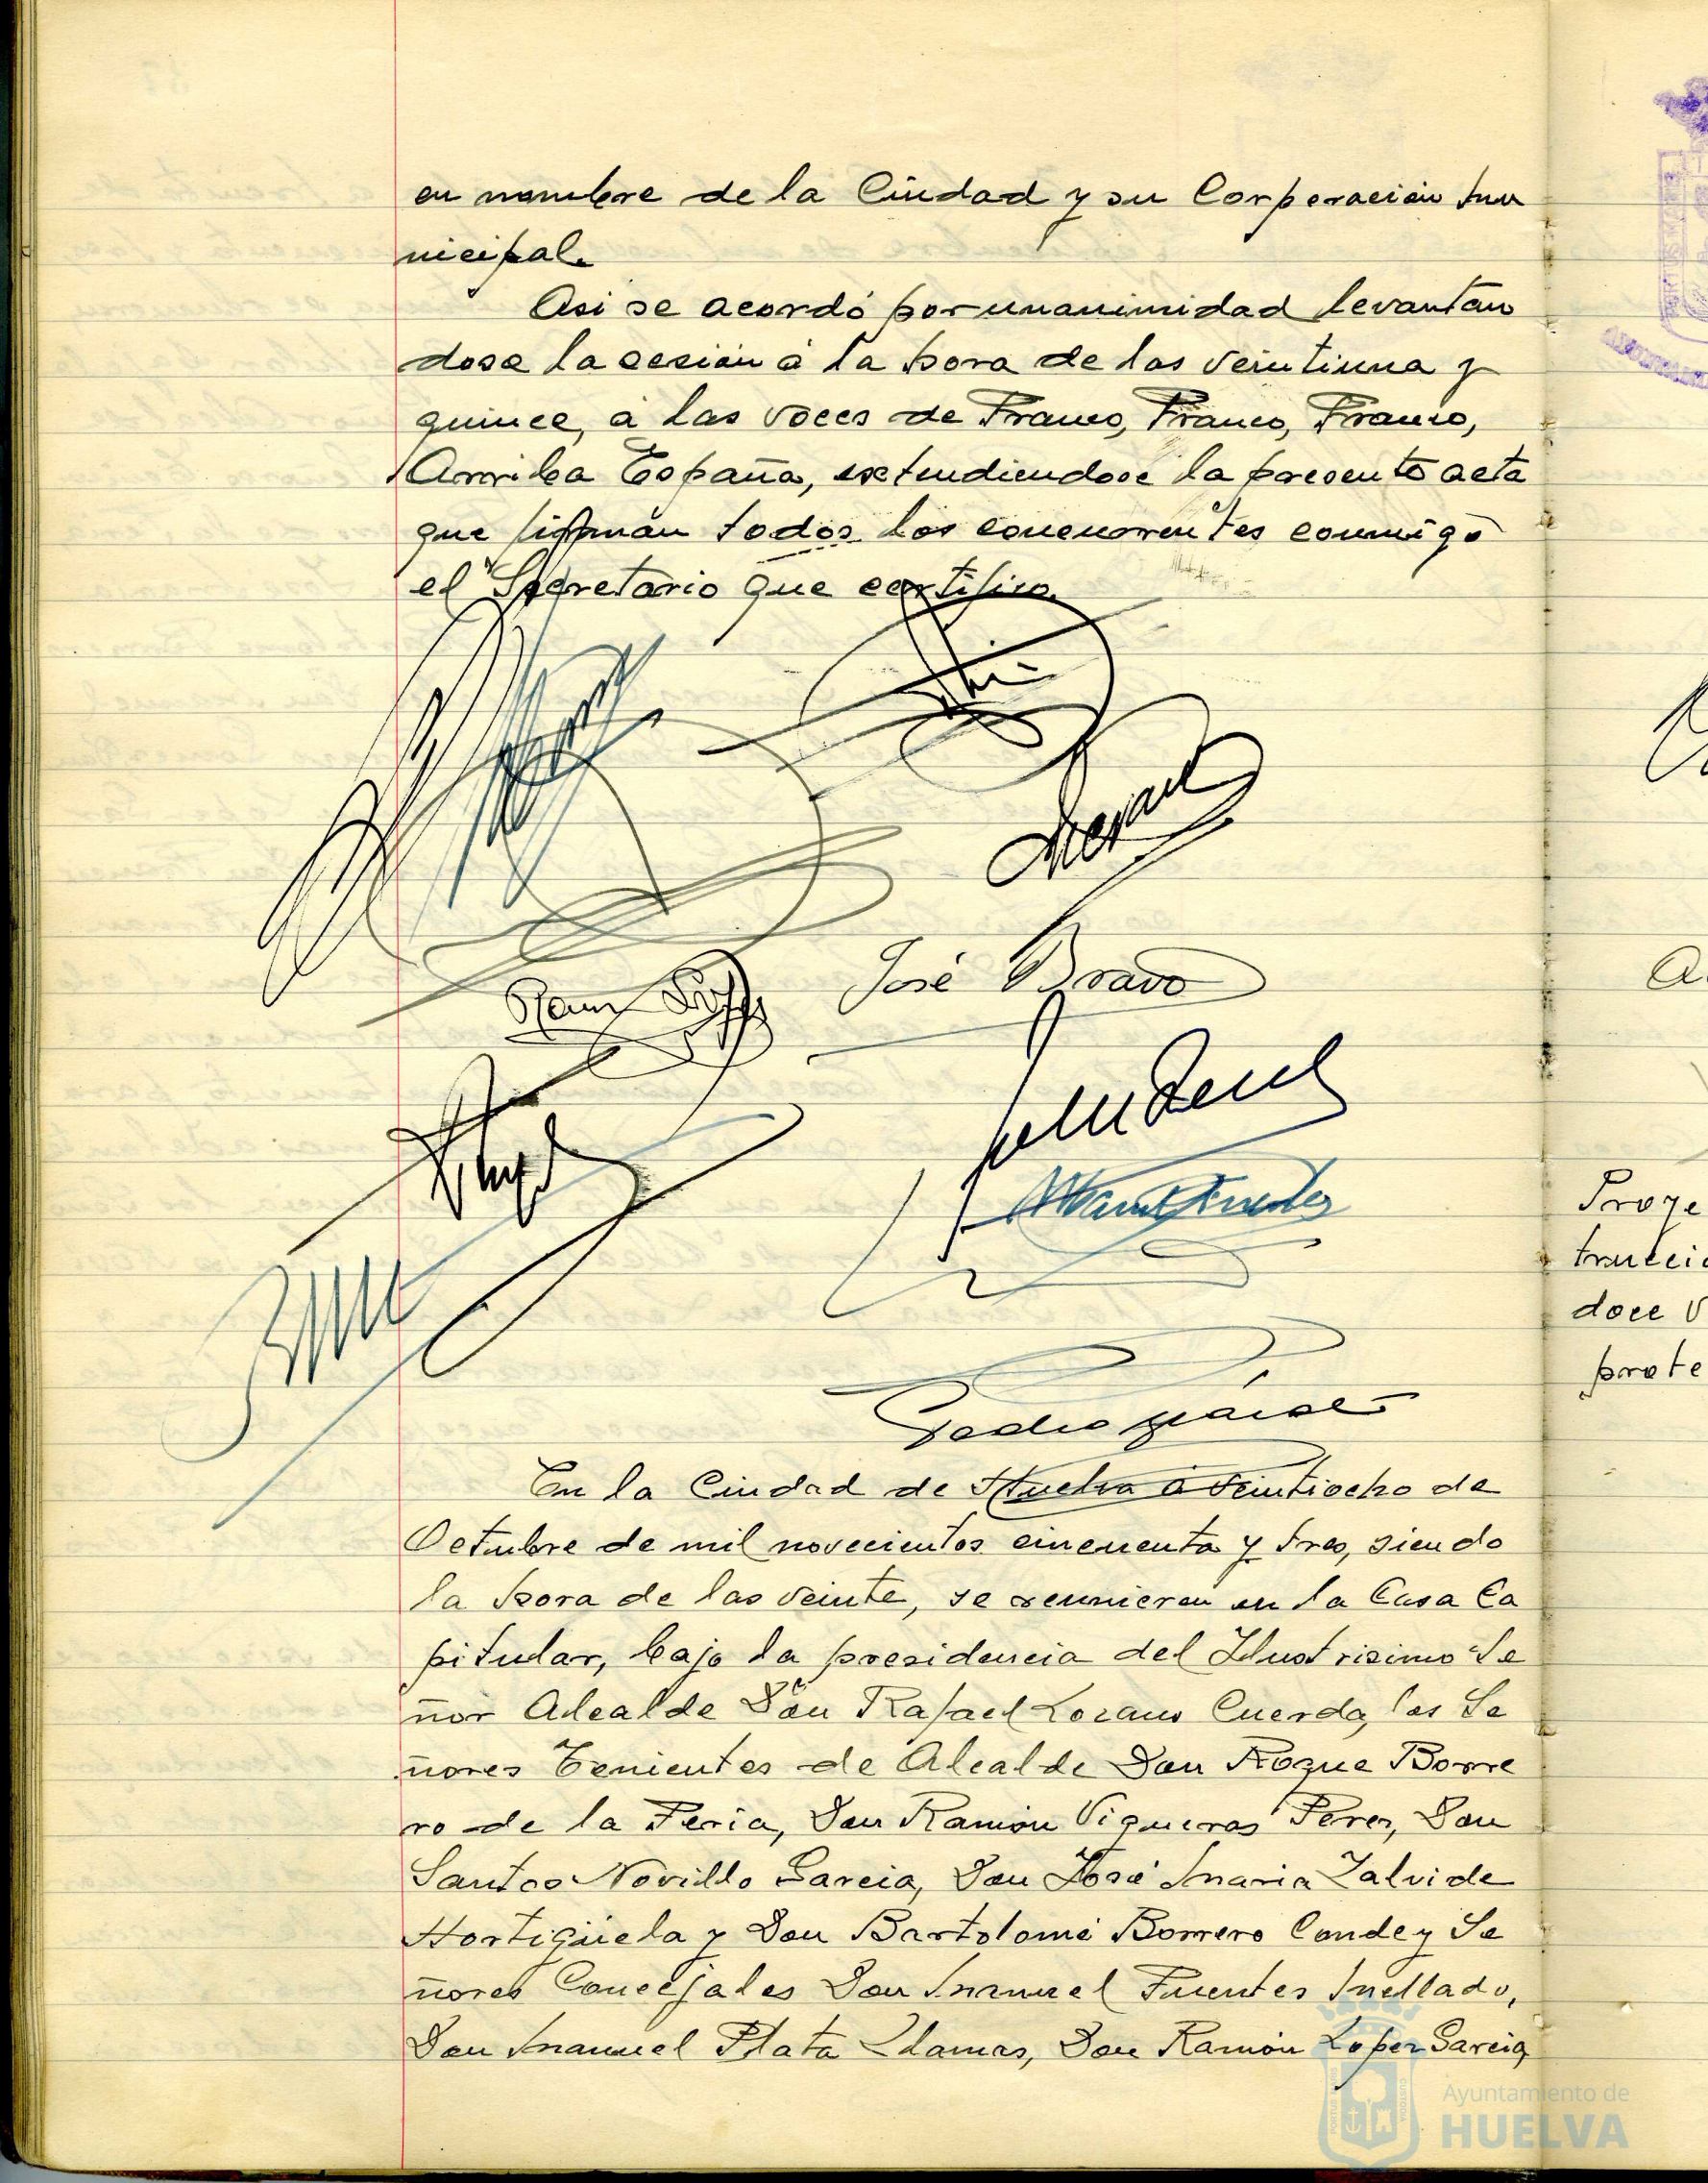 en nombre de la Ciudad y su Corporación Mu
nicipal.
Asi se acordó por unanimidad levantan
dose la sesión á la hora de las veintiuna y
quince, á las voces de Franco, Franco, Franco,
Arriba España, extendiendose la presente acta
que firman todos los concurrentes conmigo
el Secretario que certifico.
José Bravo
Pedro
En la Ciudad de Huelva á veintiocho de
Octubre de mil novecientos cincuenta y tres, siendo
la hora de las veinte, se reunieron en la Casa Ca
pitular, bajo la presidencia del Ilustrisimo Se
ñor Alcalde Don Rafael Lozano Cuerda, los Se
ñores Tenientes de Alcalde Don Roque Borre
ro de la Feria, Don Ramón Vigueras Perez, Don
Santos Novillo Garcia, Don José Maria Zalvide
Hortigüela y Don Bartolomé Borrero Conde y Se
ñores Concejales Don Manuel Fuentes Mellado,
Don Manuel Plata Llamas, Don Ramón Lopez Garcia,
Proye
trucció
doce v
prote
Ayuntamiento de
HUELVA